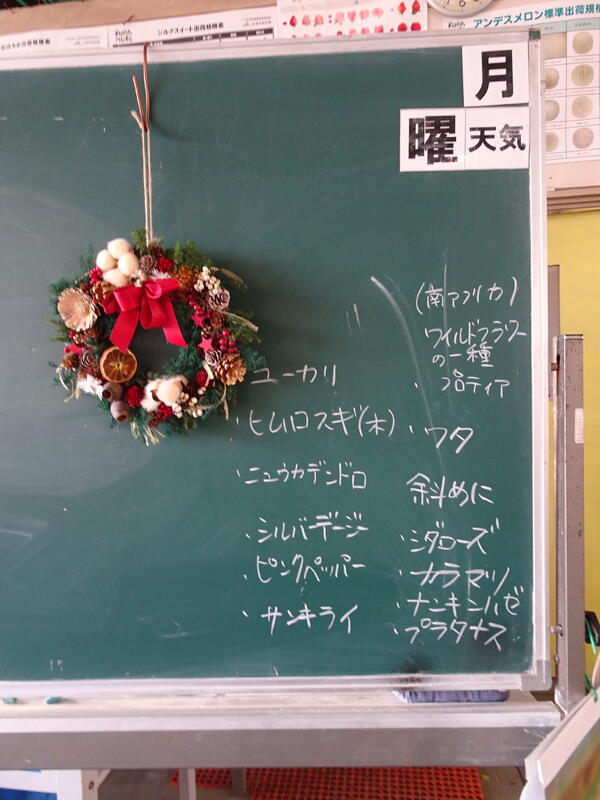 シルクスイート出荷規格表
アンデスメロン標準出荷規格
月
曜
天気
ユーカリ
・ヒムロスギ(木)
・ニュウカデンドロ
・シルバーデージー
・ピンクペッパー
・サンキライ
(南アフリカ)
ワイルドフラワー
の一種
・プロティア
・ワタ
斜めに
・シダローズ
・カラマツ
・ナンキンハゼ
・プラタナス